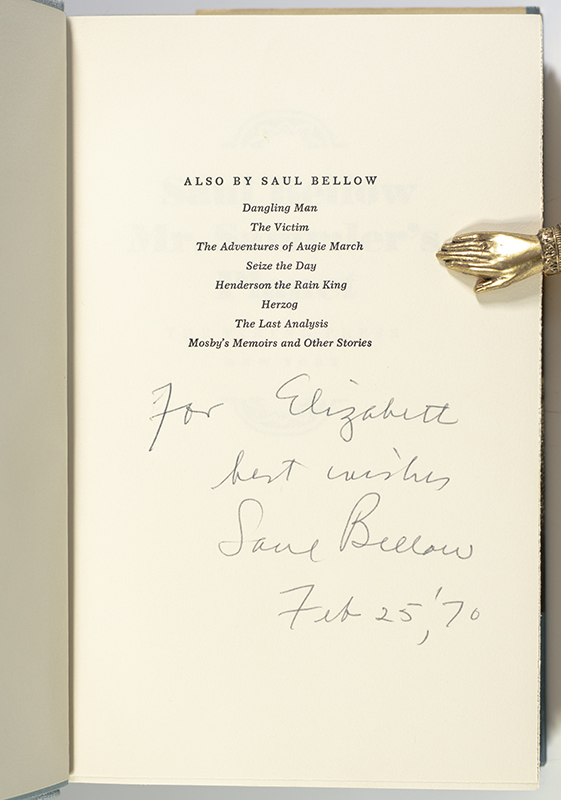 ALSO BY SAUL BELLOW
Dangling Man
The Victim
The Adventures of Augie March
Seize the Day
Henderson the Rain King
Herzog
The Last Analysis
Mosby's Memoirs and Other Stories
For Elizabeth
best wishes
Saul Bellow
Feb 25, '70